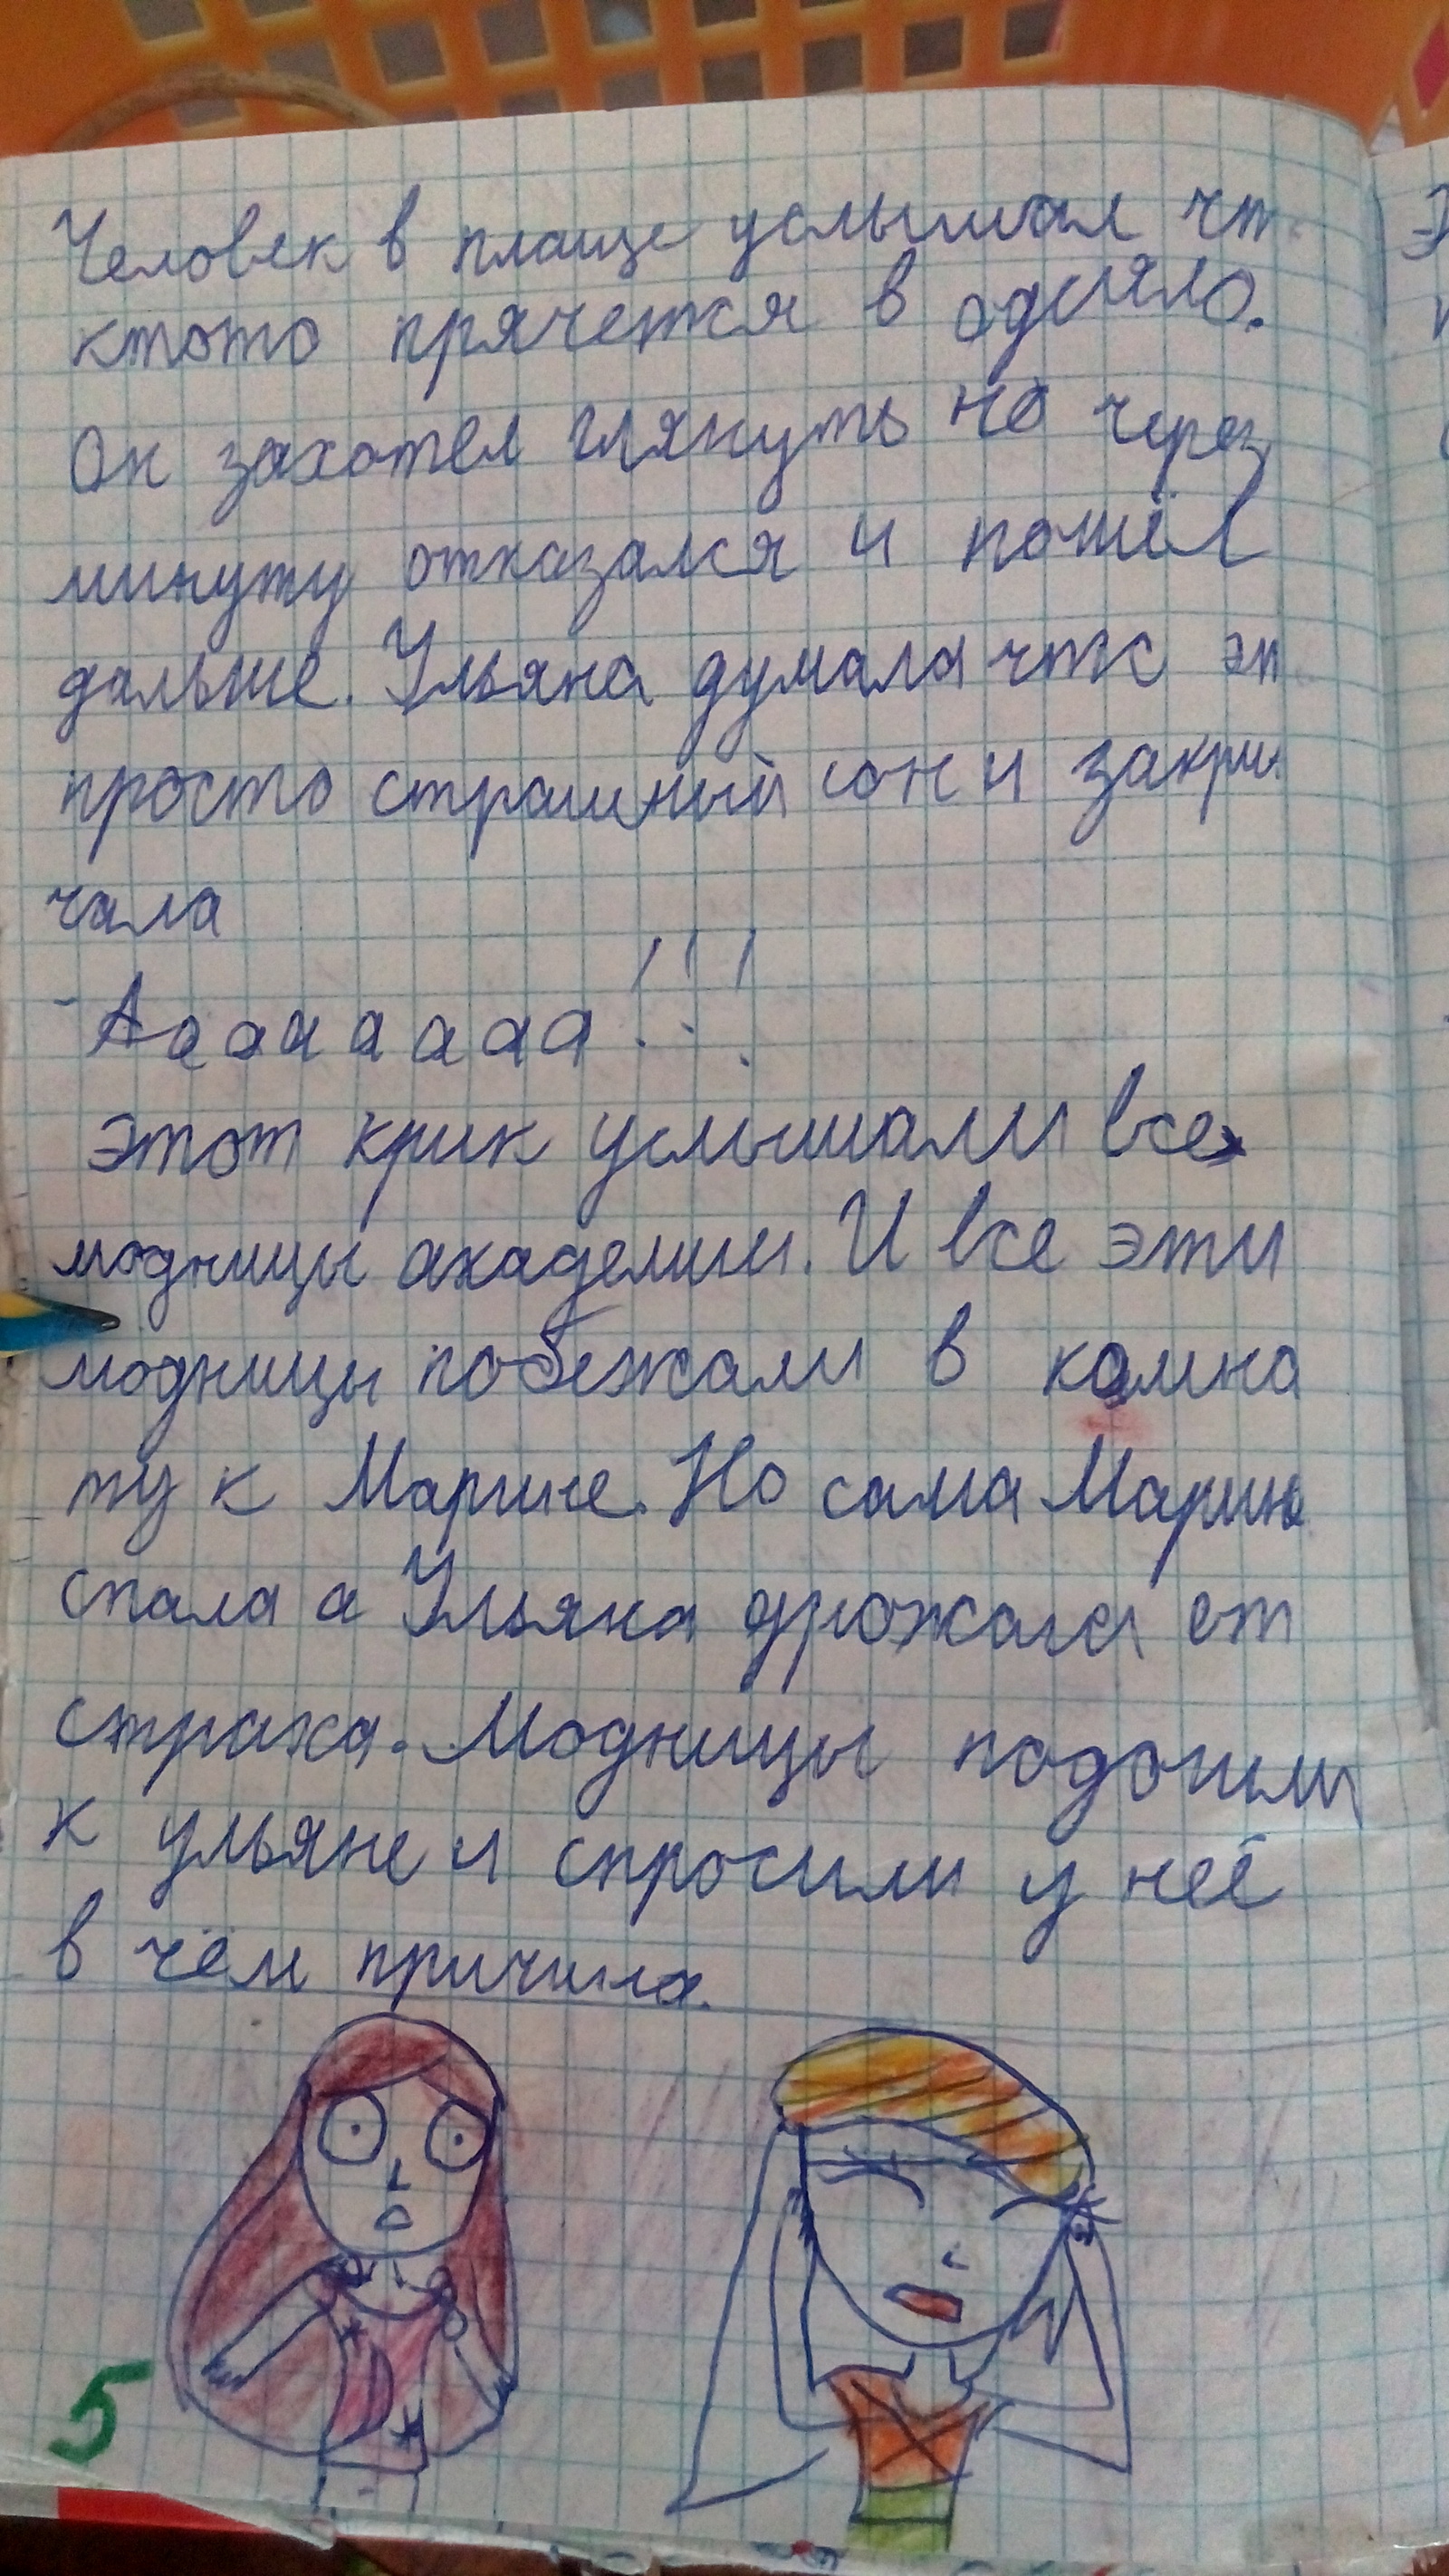 Человек в плаще услышал чт
ктото прячется в одеяло.
Он захотел глянуть но через
минуту отказался и пошёл
дальше. Ульяна думала что эт
просто страшный сон и закри
чала
- Аааааааа!!!
Этот крик услышали все
модницы академии. И все эти
модницы побежали в комна
ту к Марине. Но сама Марина
спала а Ульяна дрожала от
страха. Модницы подошли
к ульяне и спросили у неё
в чём причина.
5